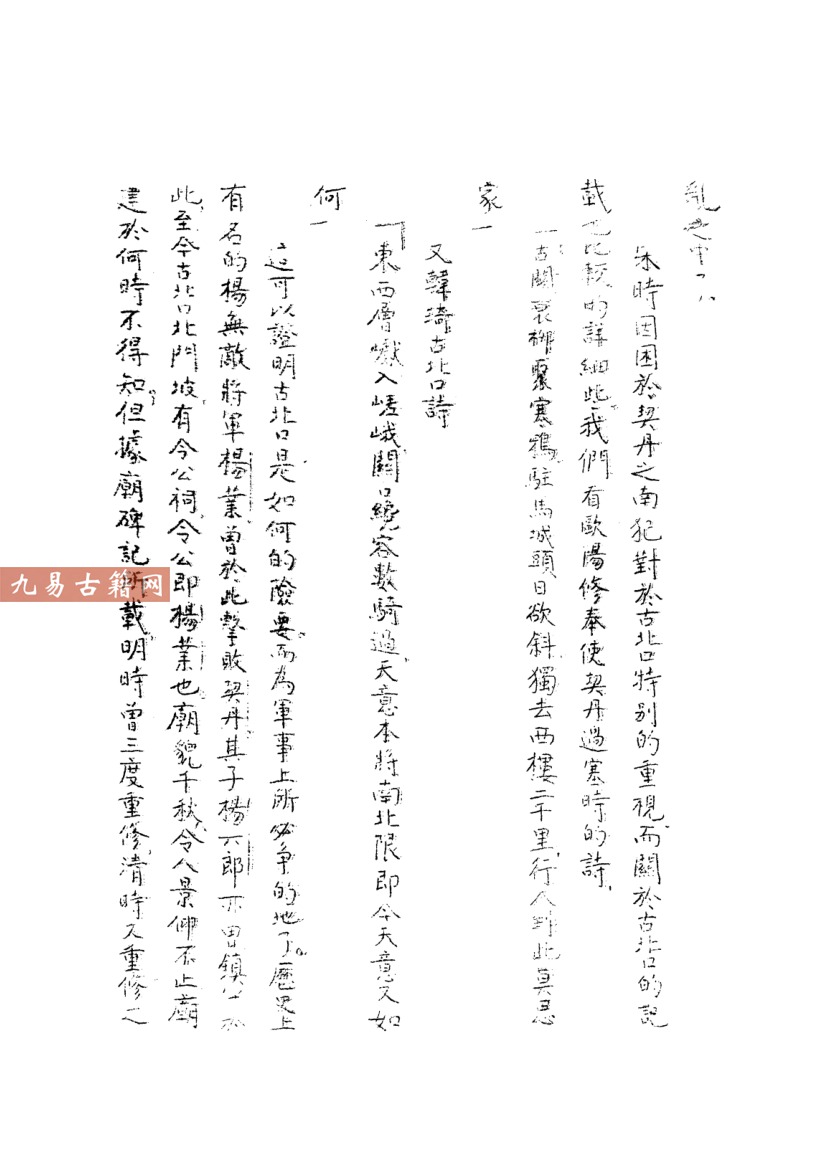 亂之中了
宋時因困於契丹之南犯對於古北口特別的重視而關於古北口的記
載也比較的詳細些、我們看歐陽修奉使契丹過塞時的詩、
「古關衰柳聚寒鴉駐馬城頭日欲斜、獨去西樓二千里、行人到此莫思
家」
又韓琦古北口詩
「東西層巘入嵯峨關口纔容數騎過、天意本將南北限即今天意又如
何」
這可以證明古北口是如何的險要、而為軍事上所必爭的地了。歷史上
有名的楊無敵將軍楊業、曾於此擊敗契丹其子楊六郎亦曾鎮
此、至今古北口北門坡、有令公祠、令公即楊業也。廟貌千秋、令人景仰不止廟
建於何時不得知、但據廟碑記所載、明時曾三度重修、清時又重修之
九易古籍网